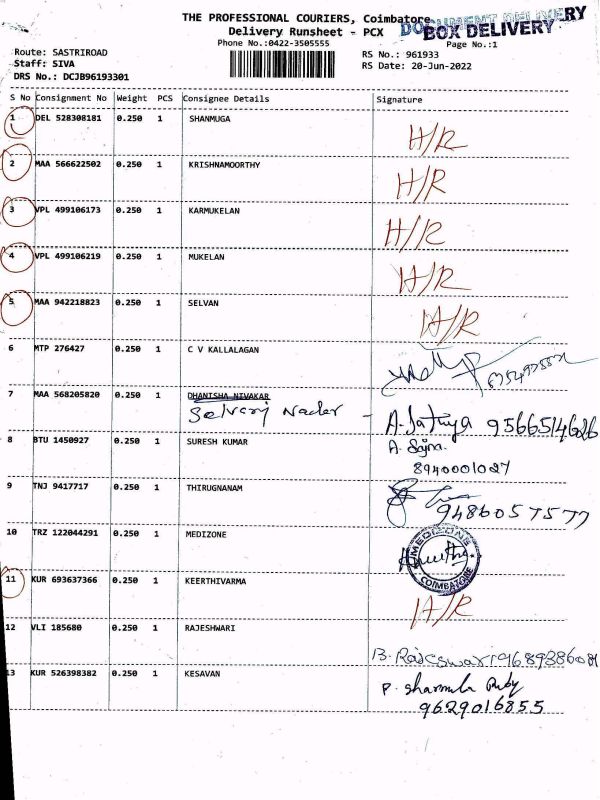 THE PROFESSIONAL COURIERS, Coimbatore
DOCUMENT DELIVERY
Delivery Runsheet - PCX
BOX DELIVERY
Phone No.:0422-3505555
Page No.:1
Route: SASTRIROAD
RS No.: 961933
Staff: SIVA
RS Date: 20-Jun-2022
DRS No.: DCJB96193301
S No Consignment No Weight PCS Consignee Details Signature
1 DEL 528308181 0.250 1 SHANMUGA
H/R
2 MAA 566622502 0.250 1 KRISHNAMOORTHY
H/R
3 VPL 499106173 0.250 1 KARMUKELAN
H/R
4 VPL 499106219 0.250 1 MUKELAN
H/R
5 MAA 942218823 0.250 1 SELVAN
H/R
6 MTP 276427 0.250 1 C V KALLALAGAN
7 MAA 568205820 0.250 1 DHANISHA NIVAKAR
Selvarj Nader - A. Sathya 9566514626
8 BTU 1450927 0.250 1 SURESH KUMAR
A. Sajna.
8940001027
9 TNJ 9417717 0.250 1 THIRUGNANAM
9486057577
10 TRZ 122044291 0.250 1 MEDIZONE
MEDIZONE
COIMBATORE
11 KUR 693637366 0.250 1 KEERTHIVARMA
H/R
12 VLI 185680 0.250 1 RAJESHWARI
B. Rajeswari 9689386081
13 KUR 526398382 0.250 1 KESAVAN
P. Sharmila Ruby
9629016855